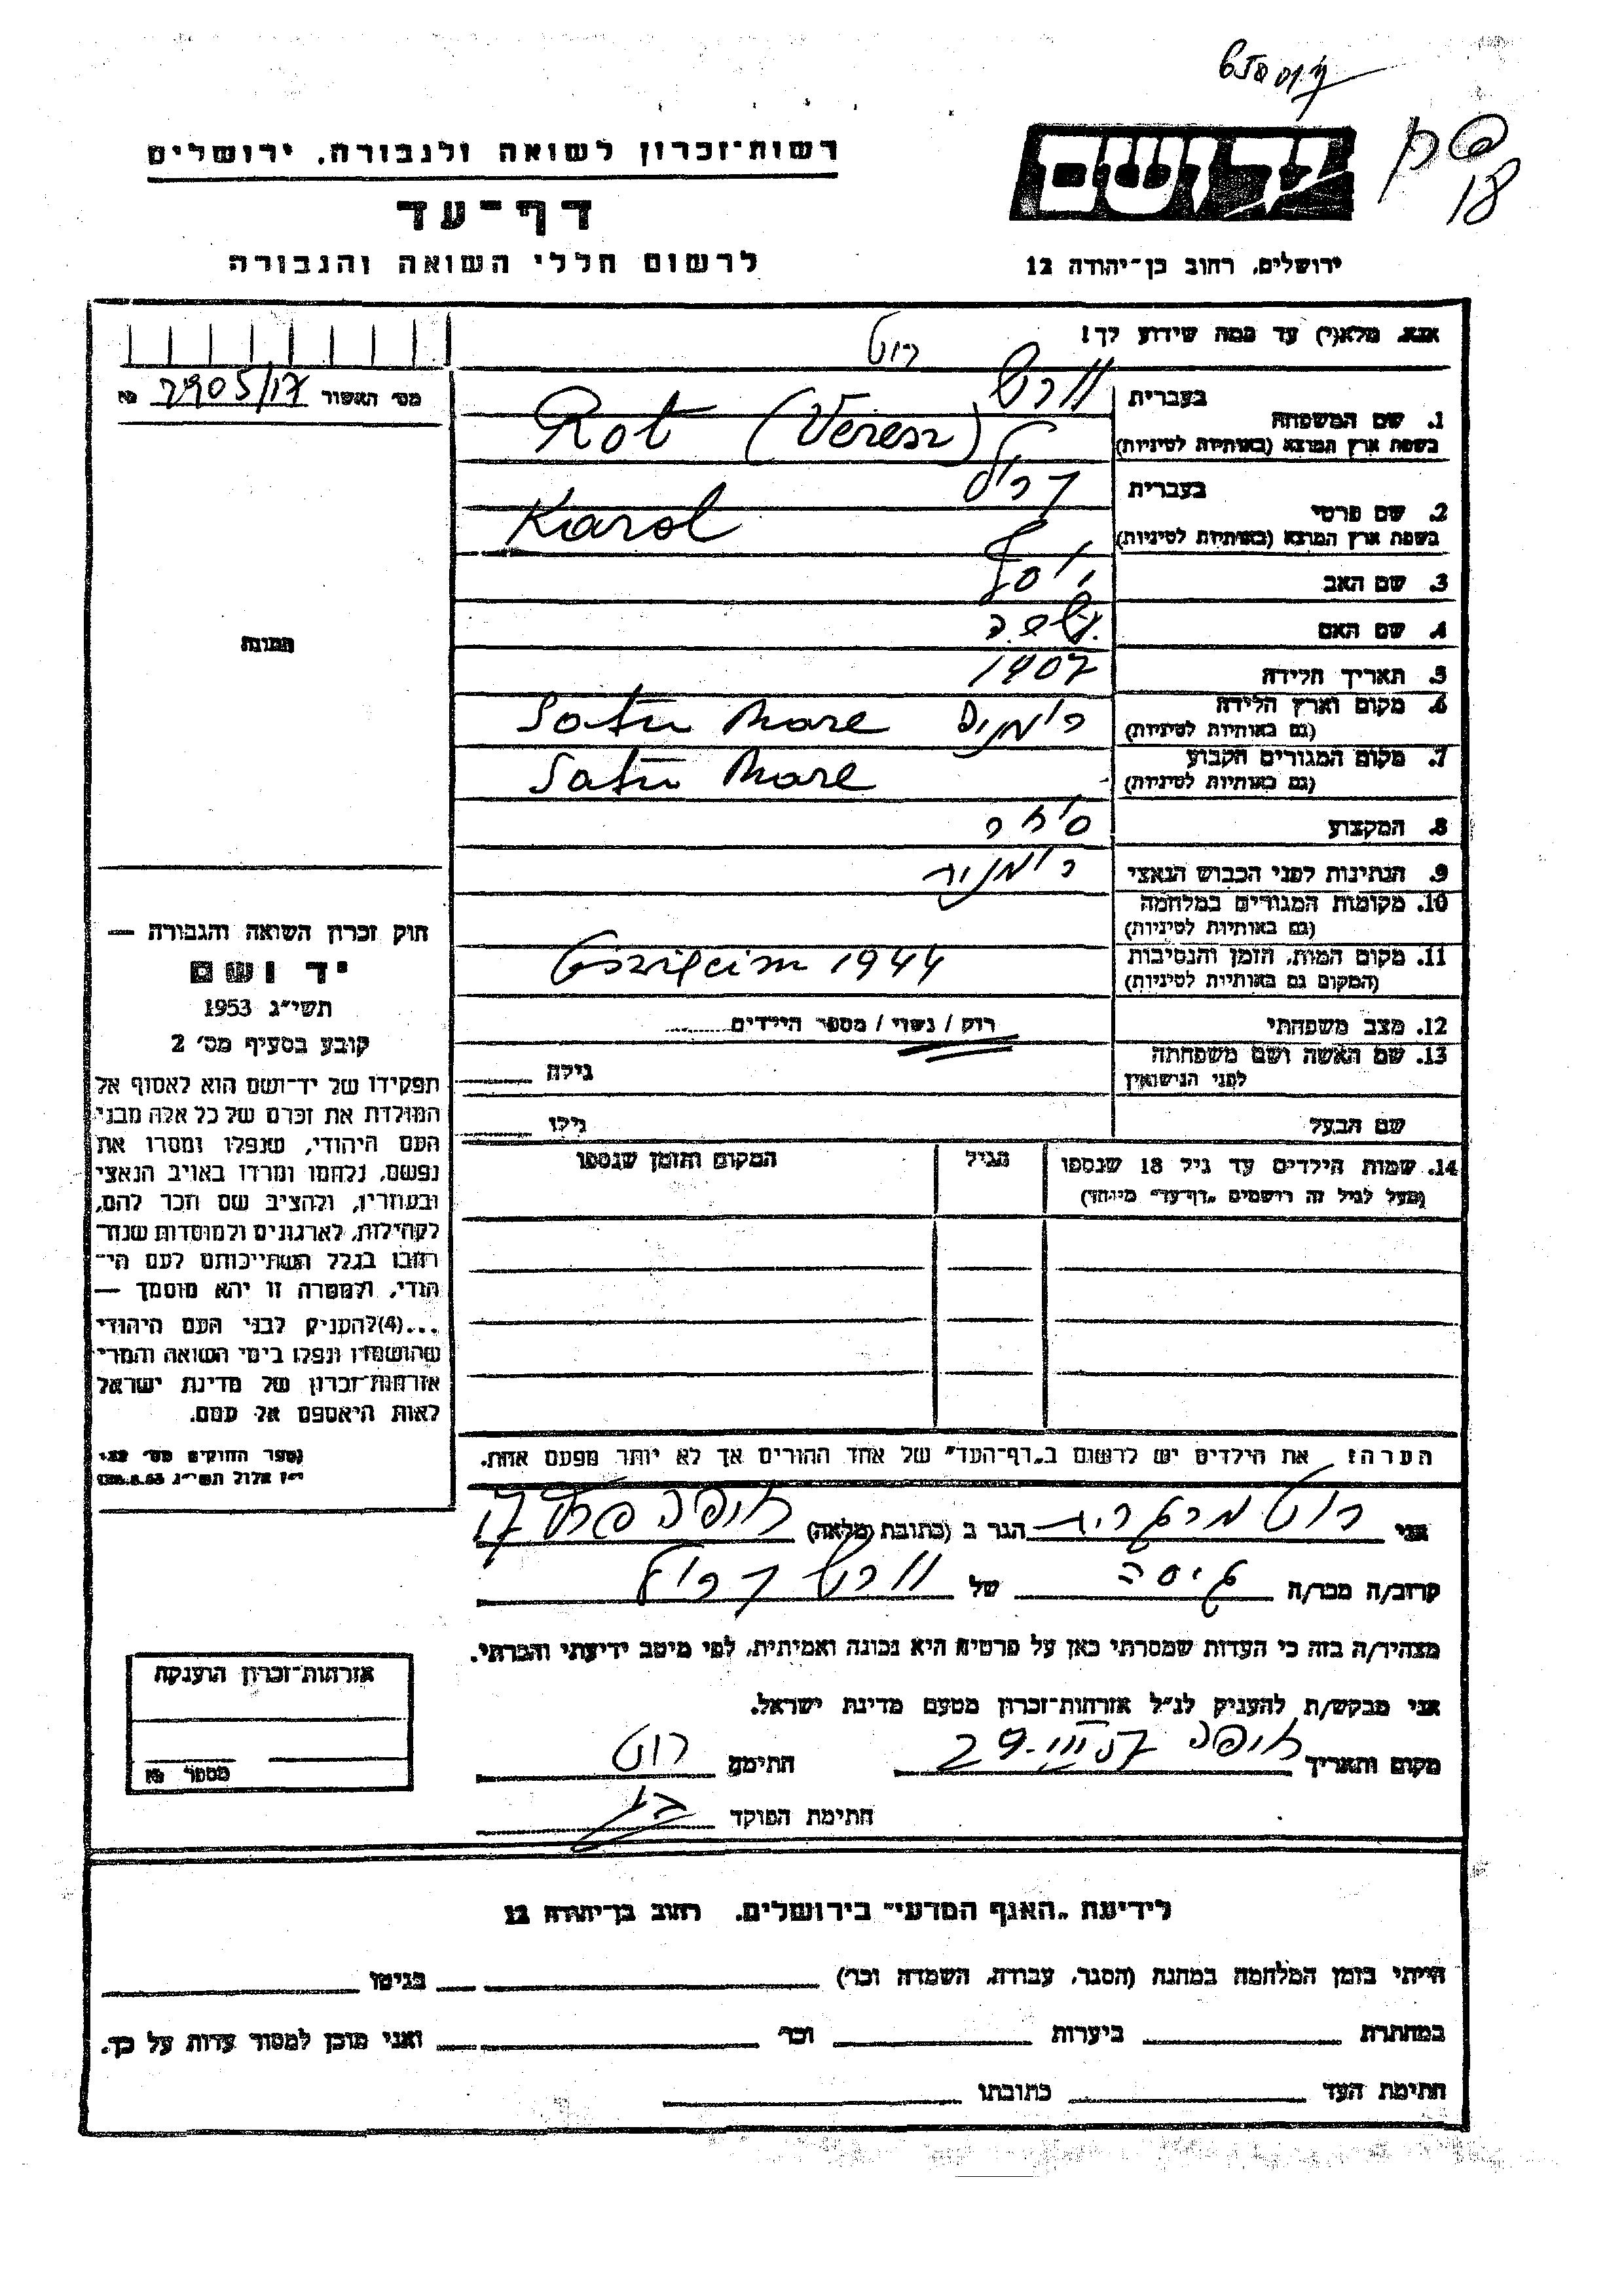 רשות־זכרון לשואה ולגבורה, ירושלים
דף־עד
לרשום חללי השואה והגבורה
ירושלים, רחוב בן־יהודה 12
אנא, מלא(י) עד כמה שידוע לך!
רוט
מס׳ האשור 2905/17
1. שם המשפחה
בעברית
וורש
בשפת ארץ המוצא (באותיות לטיניות)
Rot (Veresz)
2. שם פרטי
בעברית
קרול
בשפת ארץ המוצא (באותיות לטיניות)
Karol
3. שם האב יוסף
4. שם האם
5. תאריך הלידה 1907
6. מקום וארץ הלידה
(גם באותיות לטיניות)
רומניה Satu Mare
7. מקום המגורים הקבוע
(גם באותיות לטיניות)
Satu Mare
8. המקצוע סוחר
9. הנתינות לפני הכבוש הנאצי רומנית
10. מקומות המגורים במלחמה
(גם באותיות לטיניות)
11. מקום המות, הזמן והנסיבות
(המקום גם באותיות לטיניות)
1944
12. מצב משפחתי רוק / נשוי / מספר הילדים
13. שם האשה ושם משפחתה
לפני הנישואין
גילה
שם הבעל גילו
14. שמות הילדים עד גיל 18 שנספו
(מעל לגיל זה רושמים „דף־עד״ מיוחד)
הגיל
המקום והזמן שנספו
הערה: את הילדים יש לרשום ב„דף־העד״ של אחד ההורים אך לא יותר מפעם אחת.
תמונה
חוק זכרון השואה והגבורה —
יד ושם
תשי״ג 1953
קובע בסעיף מס׳ 2
תפקידו של יד־ושם הוא לאסוף אל
המולדת את זכרם של כל אלה מבני
העם היהודי, שנפלו ומסרו את
נפשם, נלחמו ומרדו באויב הנאצי
ובעוזריו, ולהציב שם וזכר להם,
לקהילות, לארגונים ולמוסדות שנח־
רבו בגלל השתייכותם לעם הי־
הודי, ולמטרה זו יהא מוסמך —
...(4)להעניק לבני העם היהודי
שהושמדו ונפלו בימי השואה והמרי
אזרחות־זכרון של מדינת ישראל
לאות היאספם אל עמם.
(ספר החוקים מס׳ 132
י״ז אלול תשי״ג 28.8.53)
אני רוט מרגרית הגר ב (כתובת מלאה) חיפה
קרוב/ה מכר/ה גיסה של וורש קרול
מצהיר/ה בזה כי העדות שמסרתי כאן על פרטיה היא נכונה ואמיתית, לפי מיטב ידיעתי והכרתי.
אני מבקש/ת להעניק לנ״ל אזרחות־זכרון מטעם מדינת ישראל.
מקום ותאריך חיפה 29.III.57 חתימה רוט
חתימת הפוקד
אזרחות־זכרון הוענקה
מספר
לידיעת „האגף המדעי״ בירושלים, רחוב בן־יהודה 12
הייתי בזמן המלחמה במחנה (הסגר, עבודה, השמדה וכו׳) בגיטו
במחתרת ביערות וכו׳ ואני מוכן למסור עדות על כך.
חתימת העד כתובתו